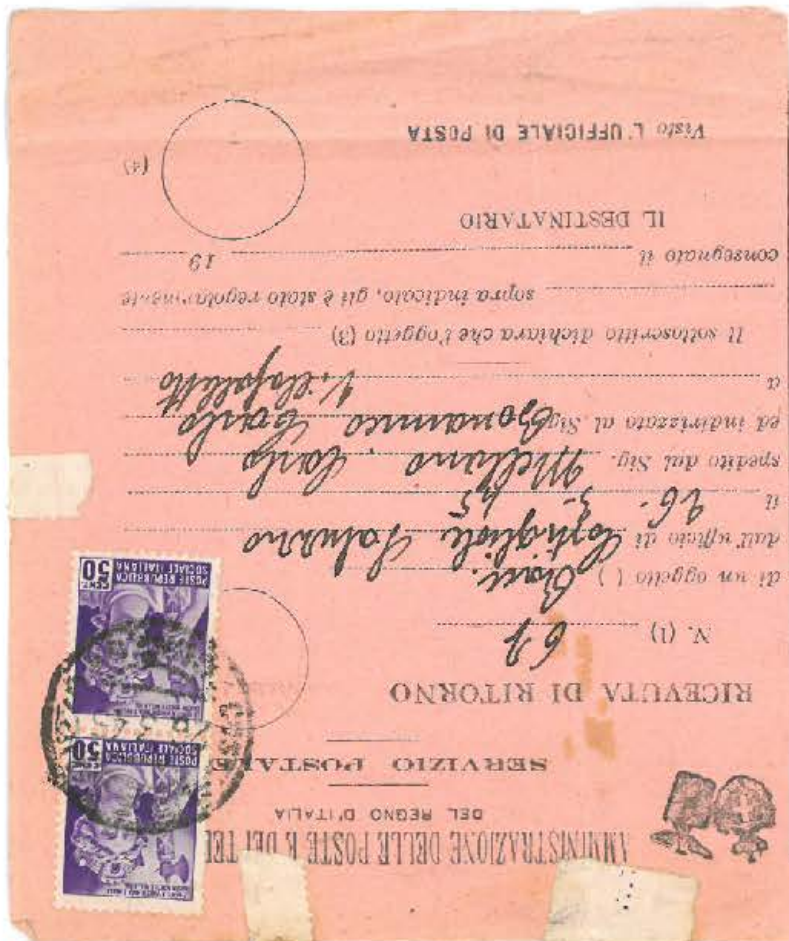 AMMINISTRAZIONE DELLE POSTE E DEI TEL
DEL REGNO D'ITALIA
SERVIZIO POSTALE
RICEVUTA DI RITORNO
N. (1)
di un oggetto ( ) Racc.
dall'ufficio di Costigliole Saluzzo
il 26. 3. 45
spedito dal Sig. Melano Carlo
ed indirizzato al Sig. Bonamico Carlo
a Villafalletto
Il sottoscritto dichiara che l'oggetto (3)
sopra indicato, gli è stato regolarmente
consegnato il 19
IL DESTINATARIO
(4)
Visto L'UFFICIALE DI POSTA
POSTE REPUBBLICA
SOCIALE ITALIANA
CENT. 50
POSTE REPUBBLICA
SOCIALE ITALIANA
CENT. 50